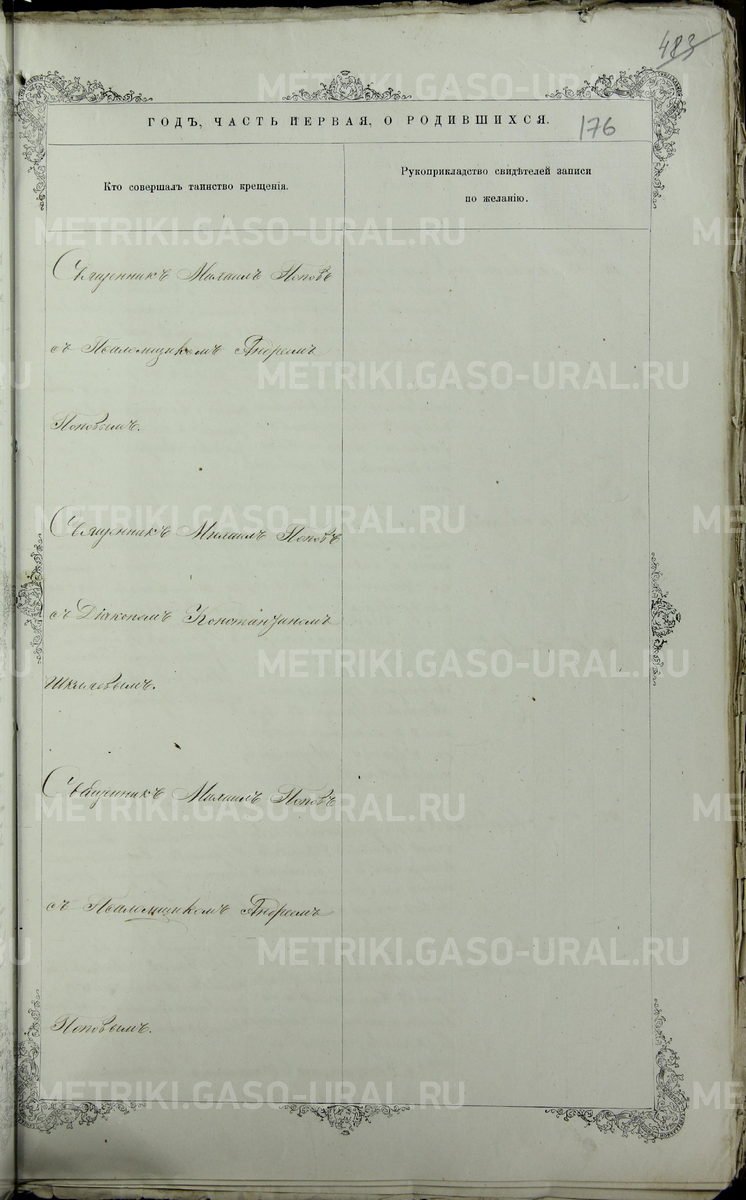 483
ГОДЪ, ЧАСТЬ ПЕРВАЯ, О РОДИВШИХСЯ.
176
Кто совершалъ таинство крещенія.
Рукоприкладство свидѣтелей записи
по желанію.
Священникъ Михаилъ Поповъ
съ Псаломщикомъ Андреемъ
Поповымъ.
Священникъ Михаилъ Поповъ
съ Діакономъ Константиномъ
Шкляевымъ.
Священникъ Михаилъ Поповъ
съ Псаломщикомъ Андреемъ
Поповымъ.
METRIKI.GASO-URAL.RU